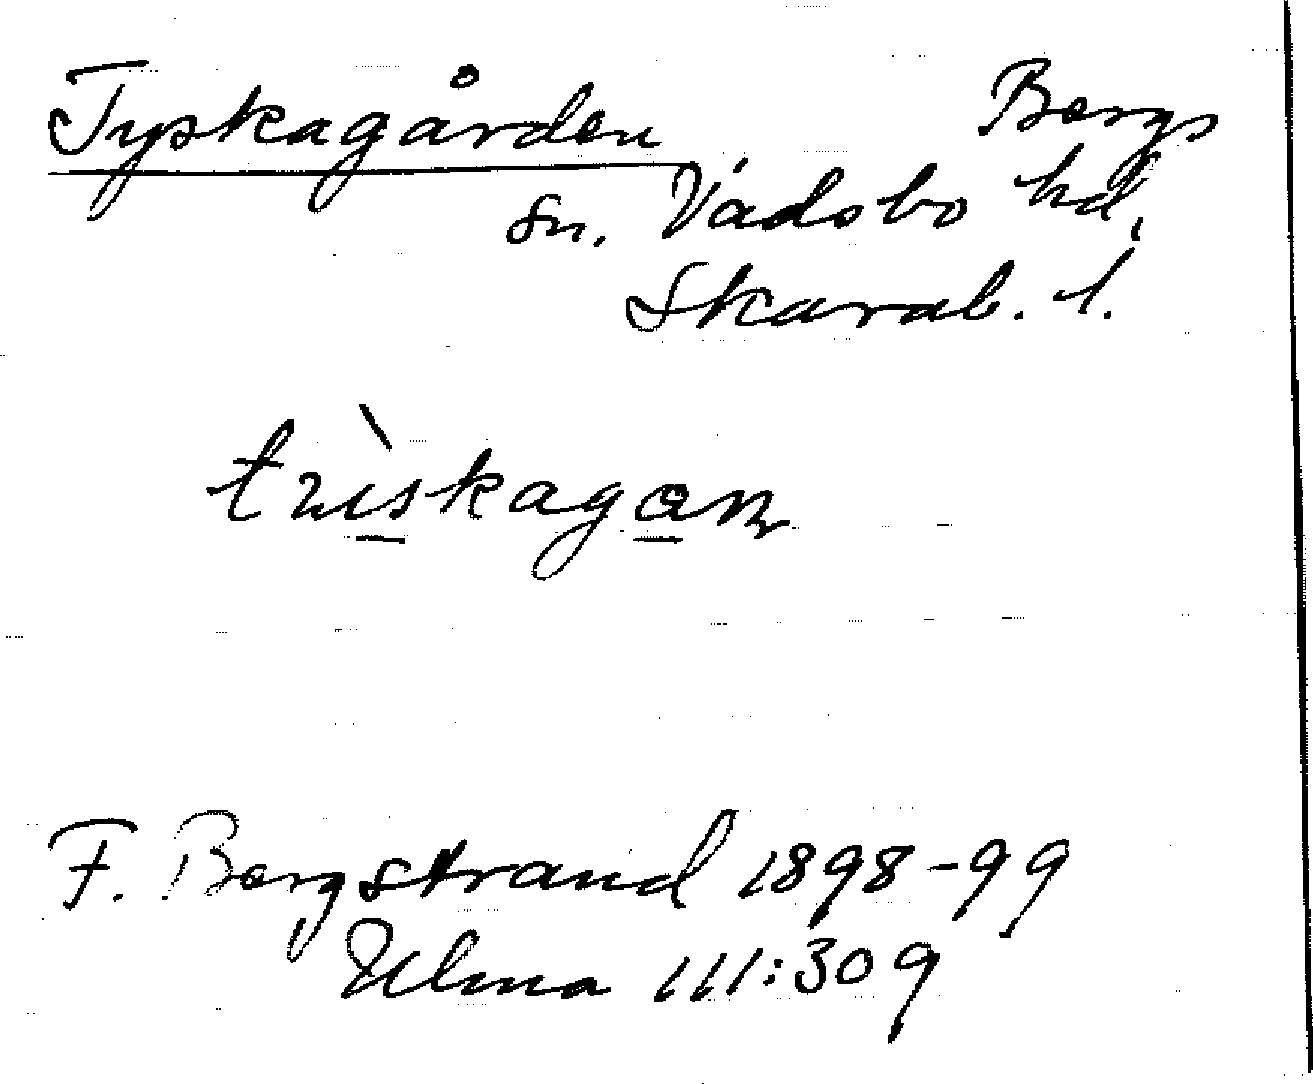 Tyskagården Bergs
sn. Vadsbo hd,
Skarab. l.
F. Bergstrand 1898-99
Ulma 111:309